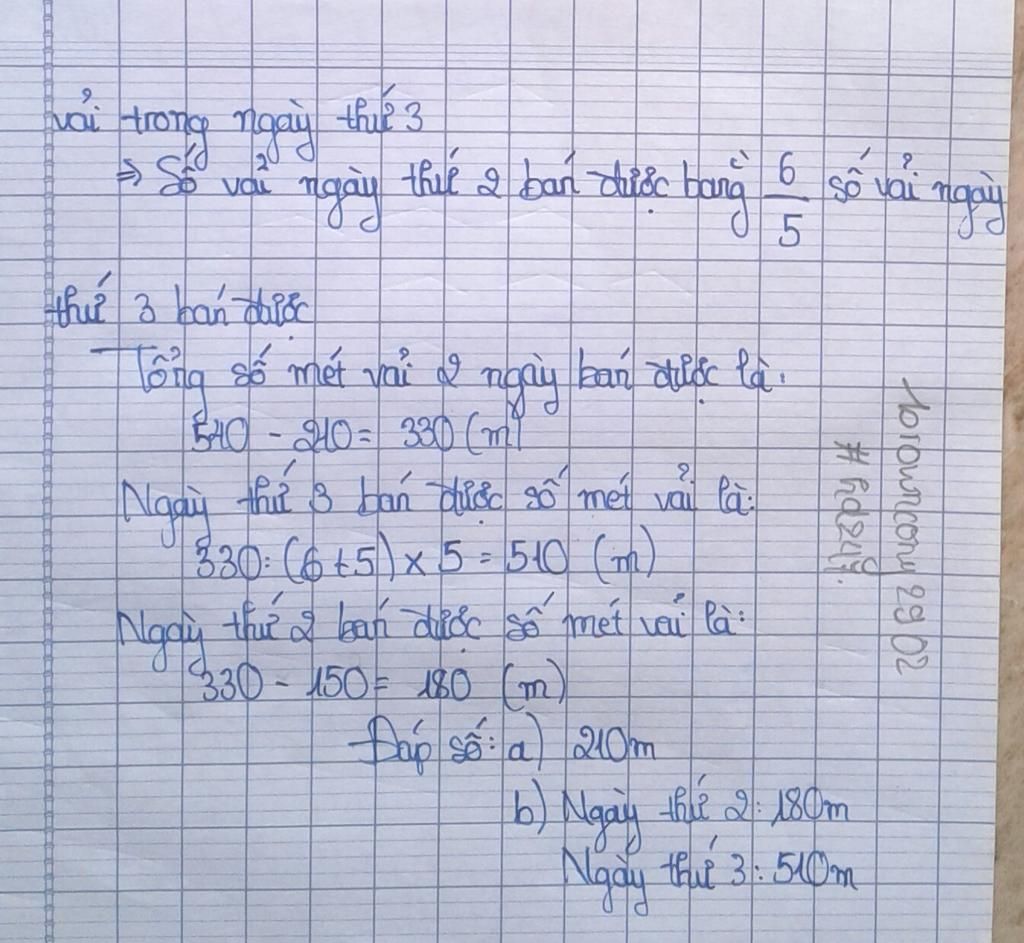 vải trong ngày thứ 3
⇒ Số vải ngày thứ 2 bán được bằng 6/5 số vải ngày
thứ 3 bán được
Tổng số mét vải 2 ngày bán được là:
540 - 210 = 330 (m)
Ngày thứ 3 bán được số mét vải là:
330 : (6 + 5) × 5 = 510 (m)
Ngày thứ 2 bán được số mét vải là:
330 - 150 = 180 (m)
Đáp số: a) 210m
b) Ngày thứ 2: 180m
Ngày thứ 3: 510m
#hd247.